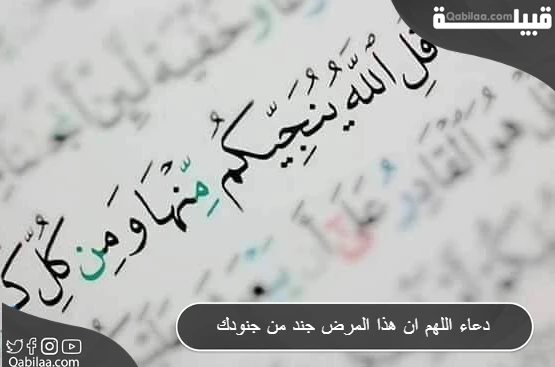 قبيلة
Qabilaa.com
وخفية لئن أنجىنا
قُلِ ٱللَّهُ يُنَجِّيكُم مِّنْهَا وَمِن كُلِّ
هُوَ ٱلْقَادِرُ عَلَىٰ أَن يَبْعَثَ
دعاء اللهم ان هذا المرض جند من جنودك
Qabilaa.com